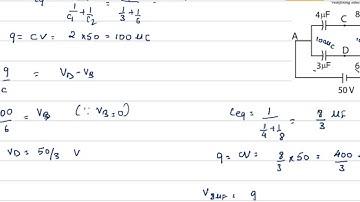 Ceq = 1/(1/C1 + 1/C2) 1/(1/3 + 1/6)
q = CV = 2 x 50 = 100 μC
q/C = VD - VB
00/6 = VB (∵ VB = 0)
VD = 50/3 V
4μF C 8
A 100μC D
3μF 6
50 V
Ceq = 1/(1/4 + 1/8) = 8/3 μF
q = CV = 8/3 x 50 = 400/3
V8μF = q